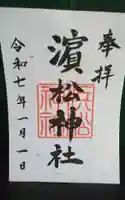 奉拝
濱松神社
令和七年一月一日